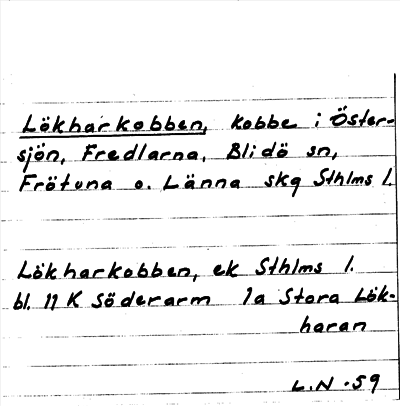 Lökharkobben, kobbe i Öster-
sjön, Fredlarna, Blidö sn,
Frötuna o. Länna skg Sthlms l.
Lökharkobben, ek Sthlms l.
bl. 11 K Söderarm 1a Stora Lök-
haran
L.N.59